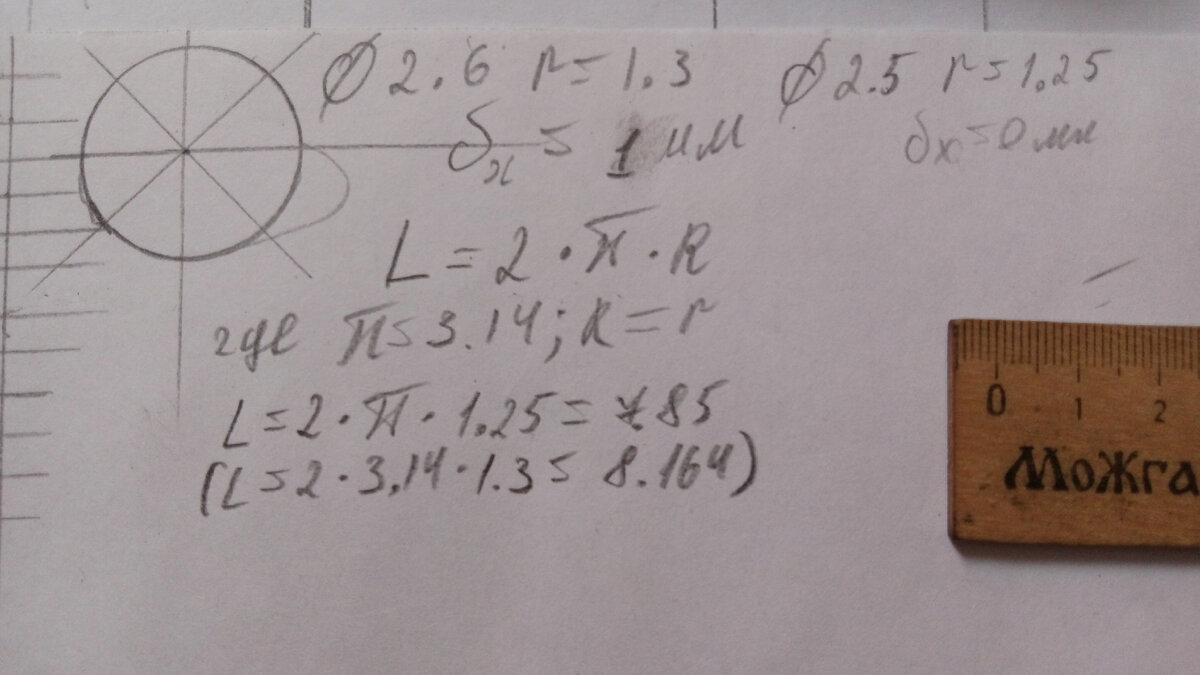 ∅ 2.6 r = 1.3
∅ 2.5 r = 1.25
δx = 1 мм
δx = 0 мм
L = 2 · π · R
где π = 3.14; R = r
L = 2 · π · 1.25 = 785
(L = 2 · 3.14 · 1.3 = 8.164)
0 1 2
Можга